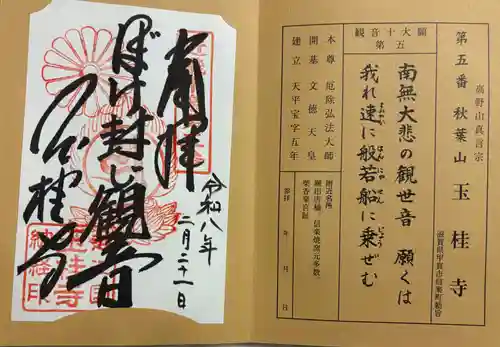 高野山真言宗
第五番 秋葉山 玉桂寺
滋賀県甲賀市信楽町勅旨
観音十大願
第五
南無大悲の観世音 願くは
我れ速に般若船に乗ぜむ
すみやか
はんにゃ
じょう
本尊 厄除弘法大師
開基 文徳天皇
建立 天平宝字五年
附近名所
参拝 年 月 日
奉拝
ぼけ封じ観音
玉桂寺
令和八年
二月二十一日